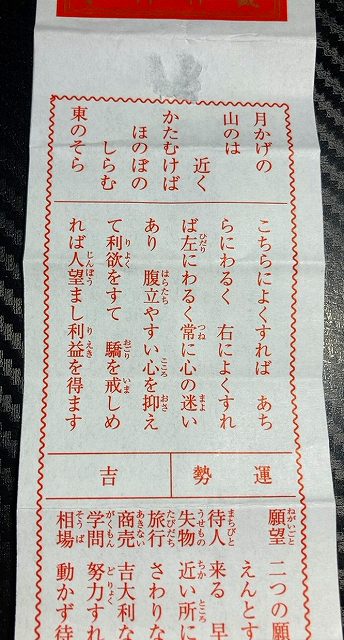 月かげの
山のは
近く
かたむけば
ほのぼの
しらむ
東のそら
こちらによくすれば あち
らにわるく 右によくすれ
ば左にわるく常に心の迷い
あり 腹立やすい心を抑え
て利欲をすて 驕を戒しめ
れば人望まし利益を得ます
運勢
吉
願望 二つの願
えんとす
待人 来る 早
失物 近い所に
旅行 さわりな
商売 吉大利な
学問 努力すれ
相場 動かず待